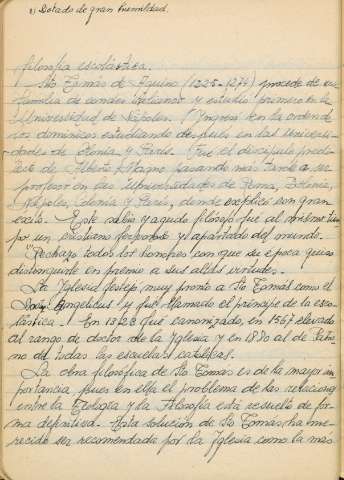 1) Dotado de gran humildad.
filosofía escolástica.
Sto Tomás de Aquino (1225-1274) procede de una
familia de condes italianos y estudió primero en la
Universidad de Nápoles. Ingresó en la orden de
los dominicos estudiando después en las Universi-
dades de Colonia y París. Fué el discípulo predi-
lecto de Alberto Magno pasando más tarde a ser
profesor en las Universidades de Roma, Bolonia,
Nápoles, Colonia y París, donde explicó con gran
exito. Este sabio y agudo filósofo fué al mismo tiem
po un cristiano fervoroso y apartado del mundo.
Rechazó todos los honores con que su época quiso
distinguirle en premio a sus altas virtudes.
La Iglesia festejó muy pronto a Sto Tomás como el
Doctor Angelicus y fué llamado el príncipe de la esco-
lástica. En 1323 fué canonizado, en 1567 elevado
al rango de doctor de la Iglesia y en 1880 al de Patro
no de todas las escuelas católicas.
La obra filosófica de Sto Tomás es de la mayor im
portancia, pues en ella el problema de las relaciones
entre la Teología y la Filosofía está resuelto de for-
ma definitiva. Esta solución de Sto Tomás ha me-
recido ser recomendada por la Iglesia como la más